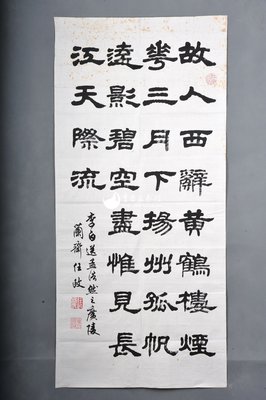 故人西辭黃鶴樓煙
華三月下揚州孤帆
遠影碧空盡惟見長
江天際流
李白送孟浩然之廣陵
蘭齋任政